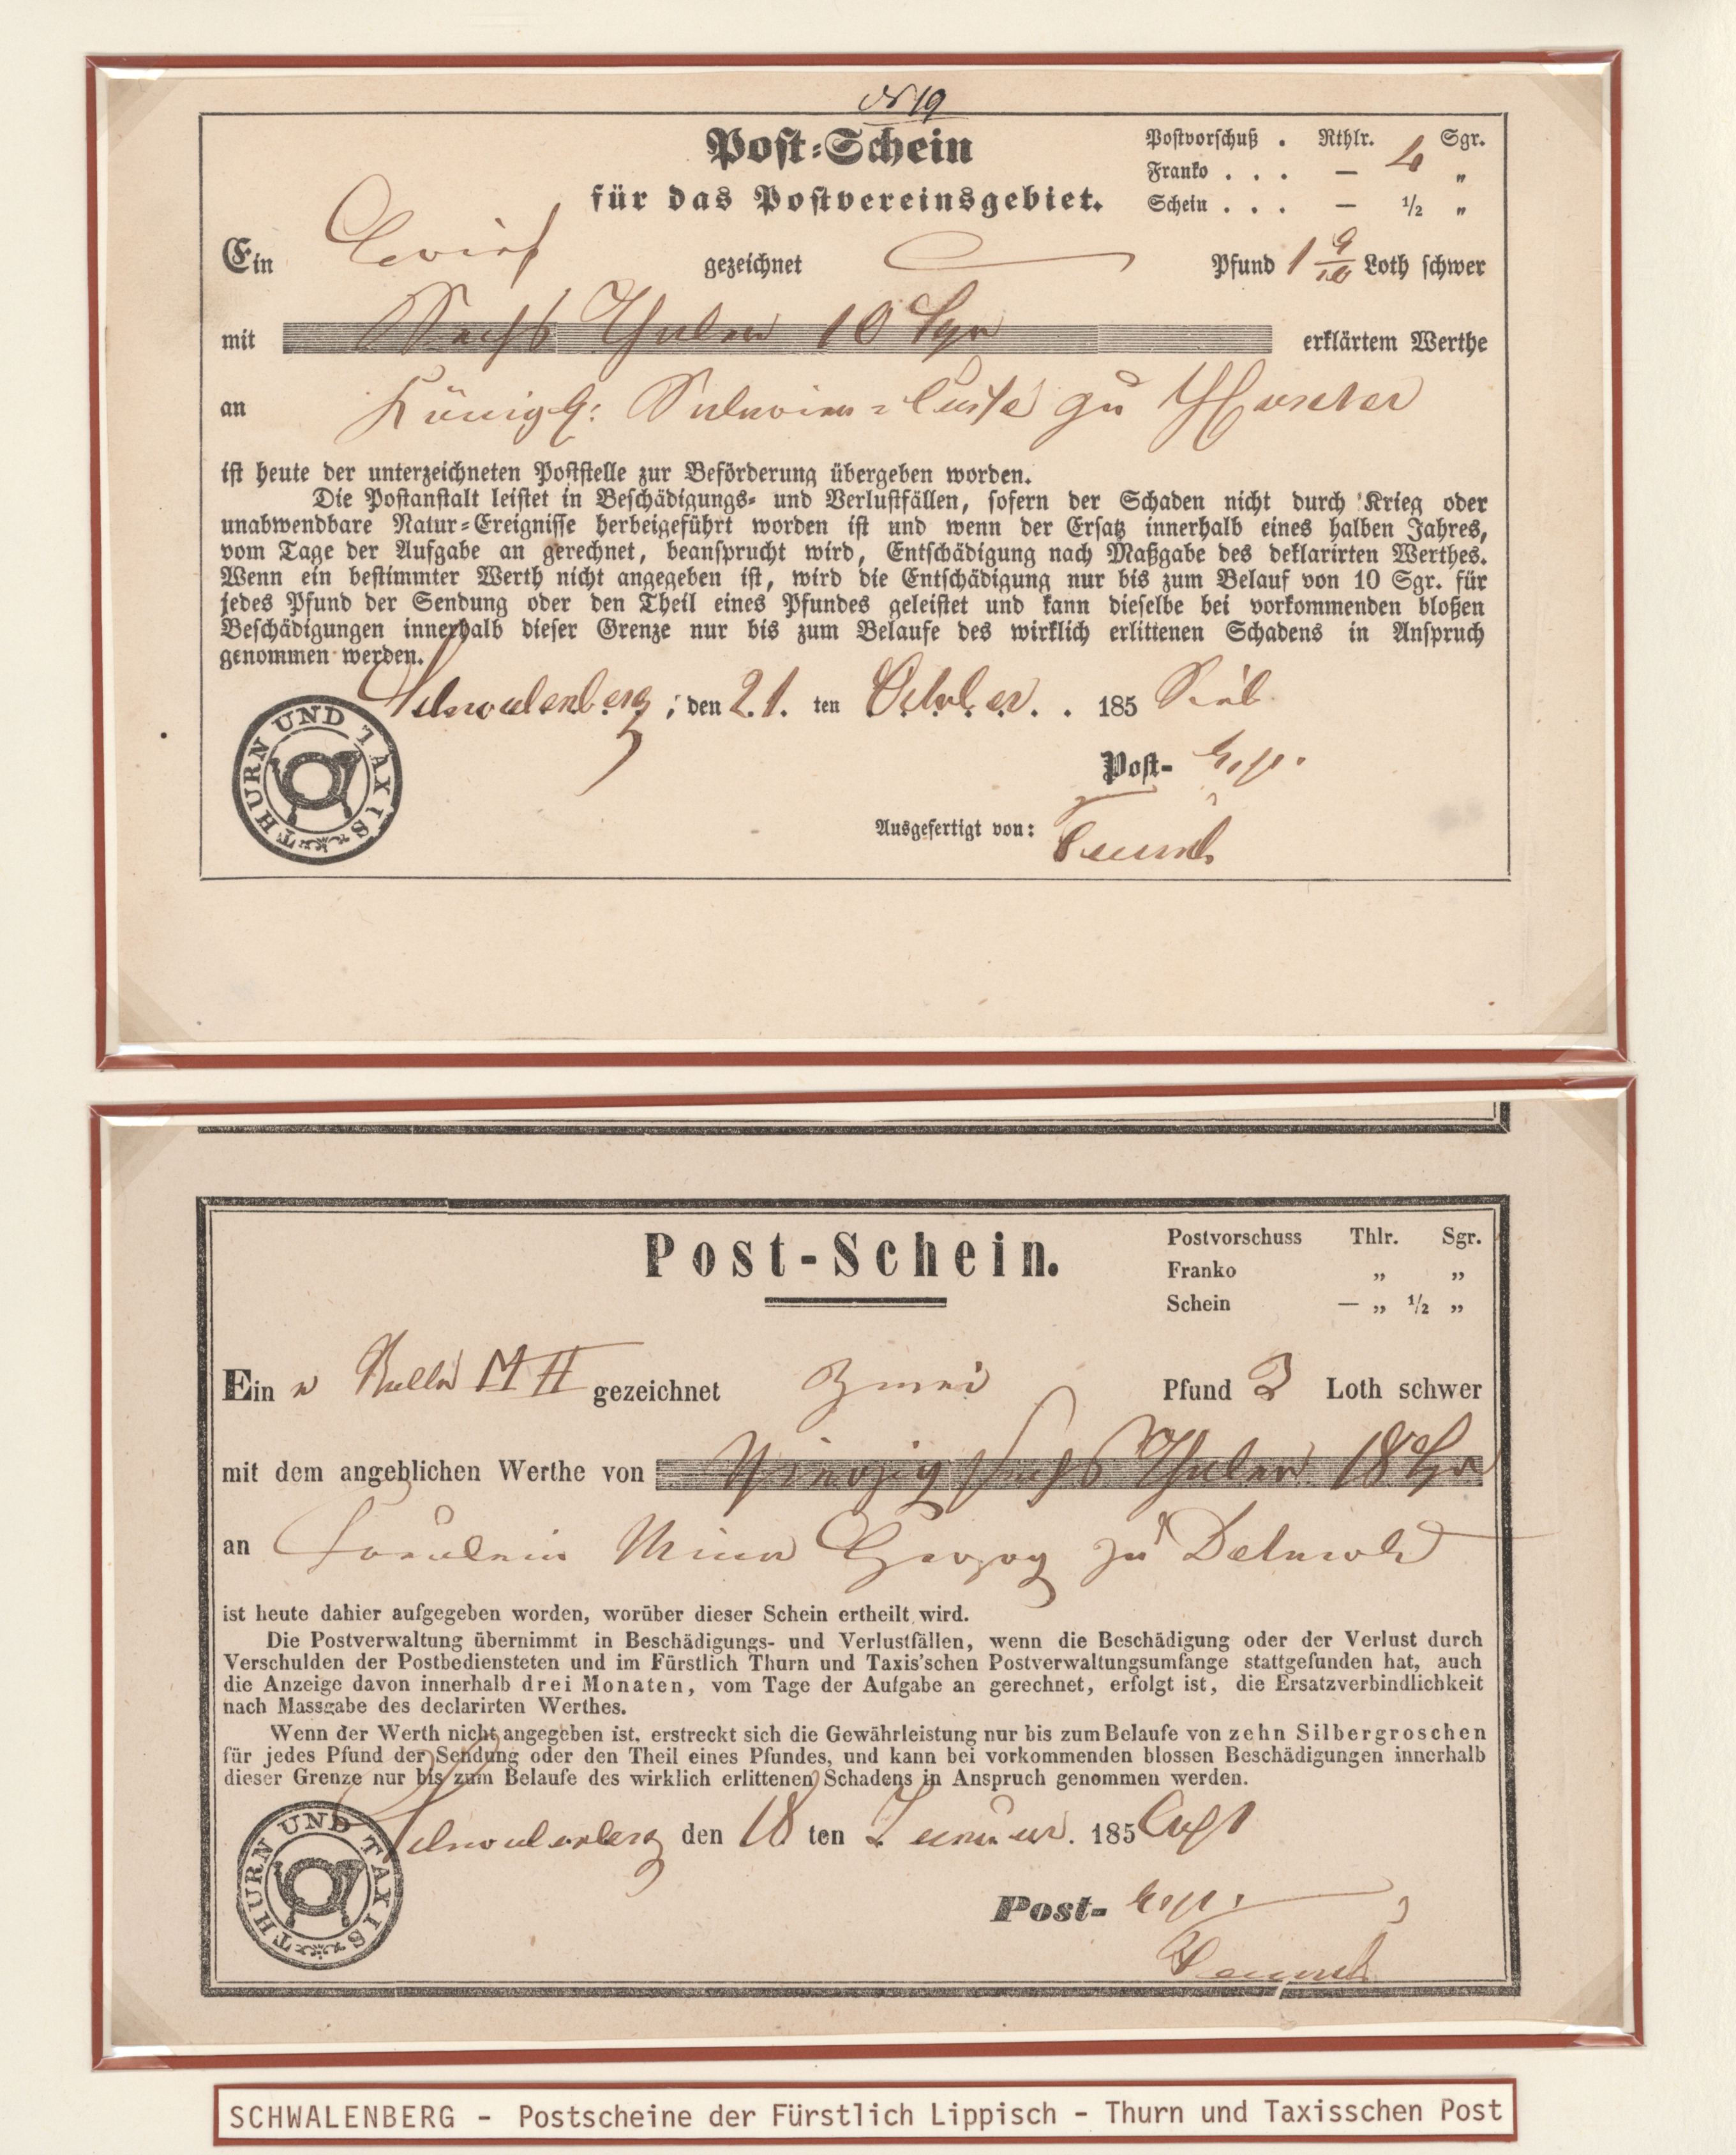 No 19
Post-Schein
für das Postvereinsgebiet.
Postvorschuß . Rthlr. Sgr.
Franko . . . — 4 "
Schein . . . — 1/2 "
Ein Brief gezeichnet Pfund 1 9/10 Loth schwer
mit Sechs Thaler 10 Sgr erklärtem Werthe
an Königl: zu Höxter
ist heute der unterzeichneten Poststelle zur Beförderung übergeben worden.
Die Postanstalt leistet in Beschädigungs- und Verlustfällen, sofern der Schaden nicht durch Krieg oder
unabwendbare Natur-Ereignisse herbeigeführt worden ist und wenn der Ersatz innerhalb eines halben Jahres,
vom Tage der Aufgabe an gerechnet, beansprucht wird, Entschädigung nach Maßgabe des deklarirten Werthes.
Wenn ein bestimmter Werth nicht angegeben ist, wird die Entschädigung nur bis zum Belauf von 10 Sgr. für
jedes Pfund der Sendung oder den Theil eines Pfundes geleistet und kann dieselbe bei vorkommenden bloßen
Beschädigungen innerhalb dieser Grenze nur bis zum Belaufe des wirklich erlittenen Schadens in Anspruch
genommen werden.
Schwalenberg, den 21. ten October . 185
Post- Exp.
Ausgefertigt von:
THURN UND TAXIS
Post-Schein.
Postvorschuss Thlr. Sgr.
Franko „ „
Schein — „ 1/2 „
Ein e Rolle M H gezeichnet Zwei Pfund 3 Loth schwer
mit dem angeblichen Werthe von Vierzig sechs Thaler 18 Sgr
an Fräulein Mina Herzog zu Detmold
ist heute dahier aufgegeben worden, worüber dieser Schein ertheilt wird.
Die Postverwaltung übernimmt in Beschädigungs- und Verlustfällen, wenn die Beschädigung oder der Verlust durch
Verschulden der Postbediensteten und im Fürstlich Thurn und Taxis'schen Postverwaltungsumfange stattgefunden hat, auch
die Anzeige davon innerhalb drei Monaten, vom Tage der Aufgabe an gerechnet, erfolgt ist, die Ersatzverbindlichkeit
nach Massgabe des declarirten Werthes.
Wenn der Werth nicht angegeben ist, erstreckt sich die Gewährleistung nur bis zum Belaufe von zehn Silbergroschen
für jedes Pfund der Sendung oder den Theil eines Pfundes, und kann bei vorkommenden blossen Beschädigungen innerhalb
dieser Grenze nur bis zum Belaufe des wirklich erlittenen Schadens in Anspruch genommen werden.
Schwalenberg den 18 ten Januar. 185 Acht
Post- Exp.
THURN UND TAXIS
SCHWALENBERG - Postscheine der Fürstlich Lippisch - Thurn und Taxisschen Post